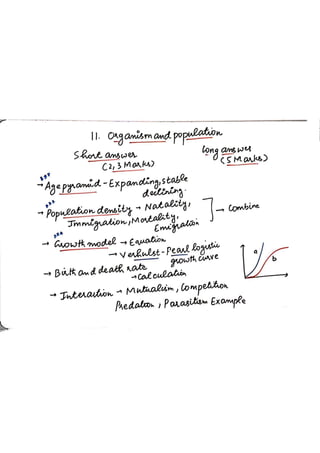 11. Organism and population
Short answer
(2,3 Marks)
Long answer
(5 Marks)
→ Age pyramid - Expanding, stable
declining.
→ Population density → Natality,
Immigration, Mortality,
Emigration
→ Combine
→ Growth model → Equation
→ Verhulst - Pearl logistic
growth curve
a
b
→ Birth and death rate
→ Calculation
→ Interaction → Mutualism, Competition
Predation, Parasitism Example